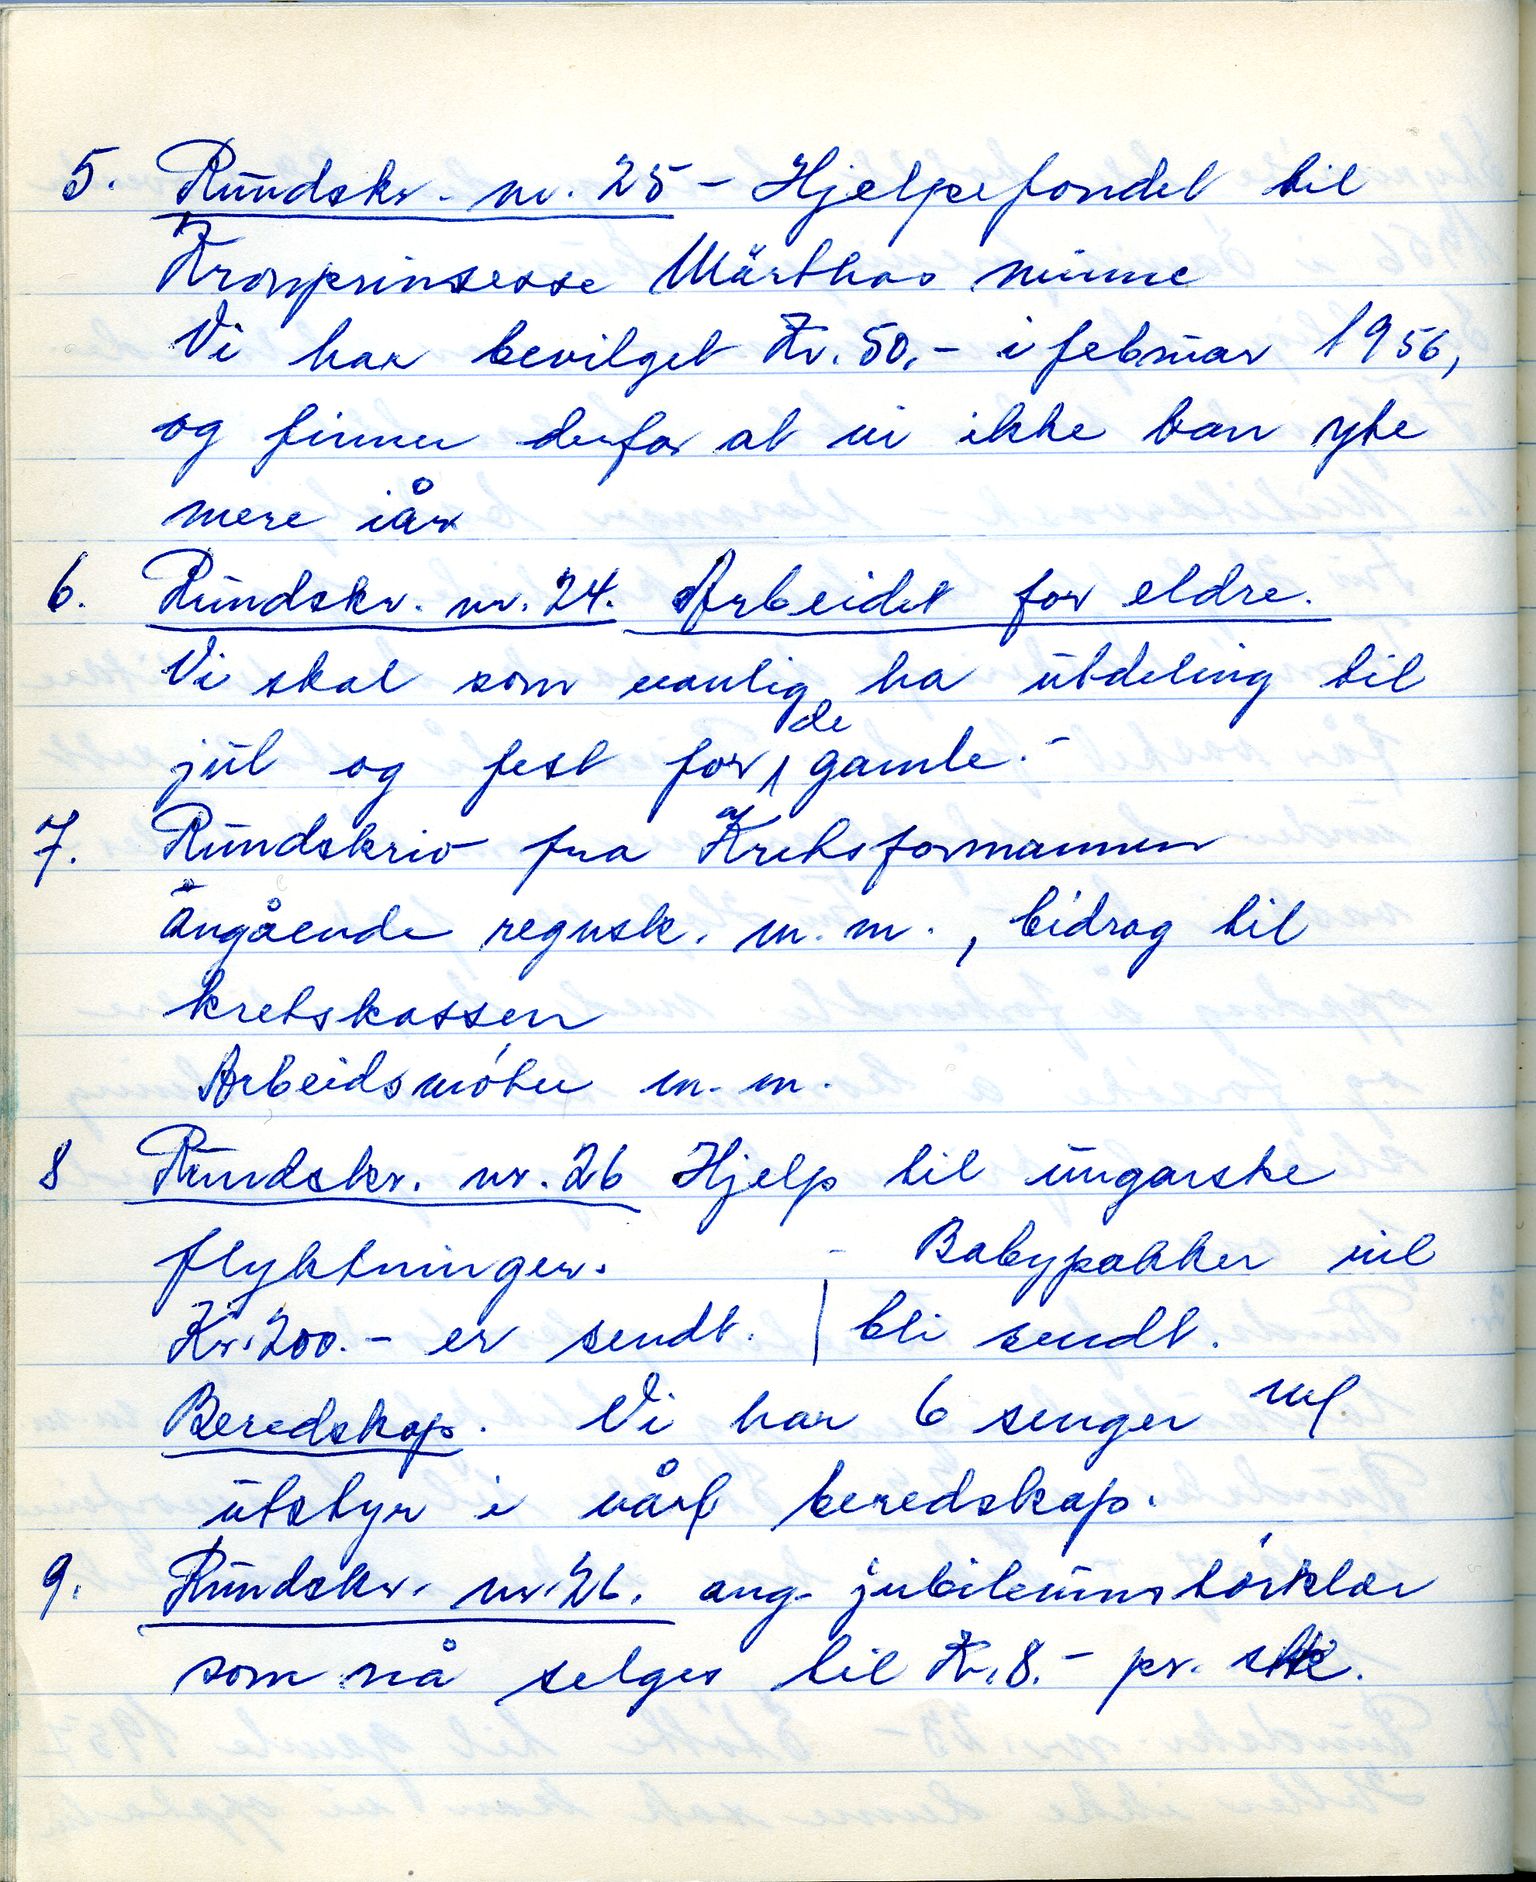 5. Rundskr. nr. 25 - Hjelpefondet til
Kronprinsesse Märthas minne
Vi har bevilget Kr. 50,- i februar 1956,
og finner derfor at vi ikke kan yte
mere iår
6. Rundskr. nr. 24. Arbeidet for eldre.
Vi skal som vanlig ha utdeling til
jul og fest for de gamle.-
7. Rundskriv fra Kretsformannen
angående regnsk. m. m. , bidrag til
kretskassen
Arbeidsmóter m. m.
8 Rundskr. nr. 26 Hjelp til ungarske
flyktninger. - Babypakker vil
Kr. 200.- er sendt. | bli sendt.
Beredskap. Vi har 6 senger m/
utstyr i vårt beredskap.
9. Rundskr. nr. 26. ang. jubileumstórklær
som nå selges til Kr. 8.- pr. stk.